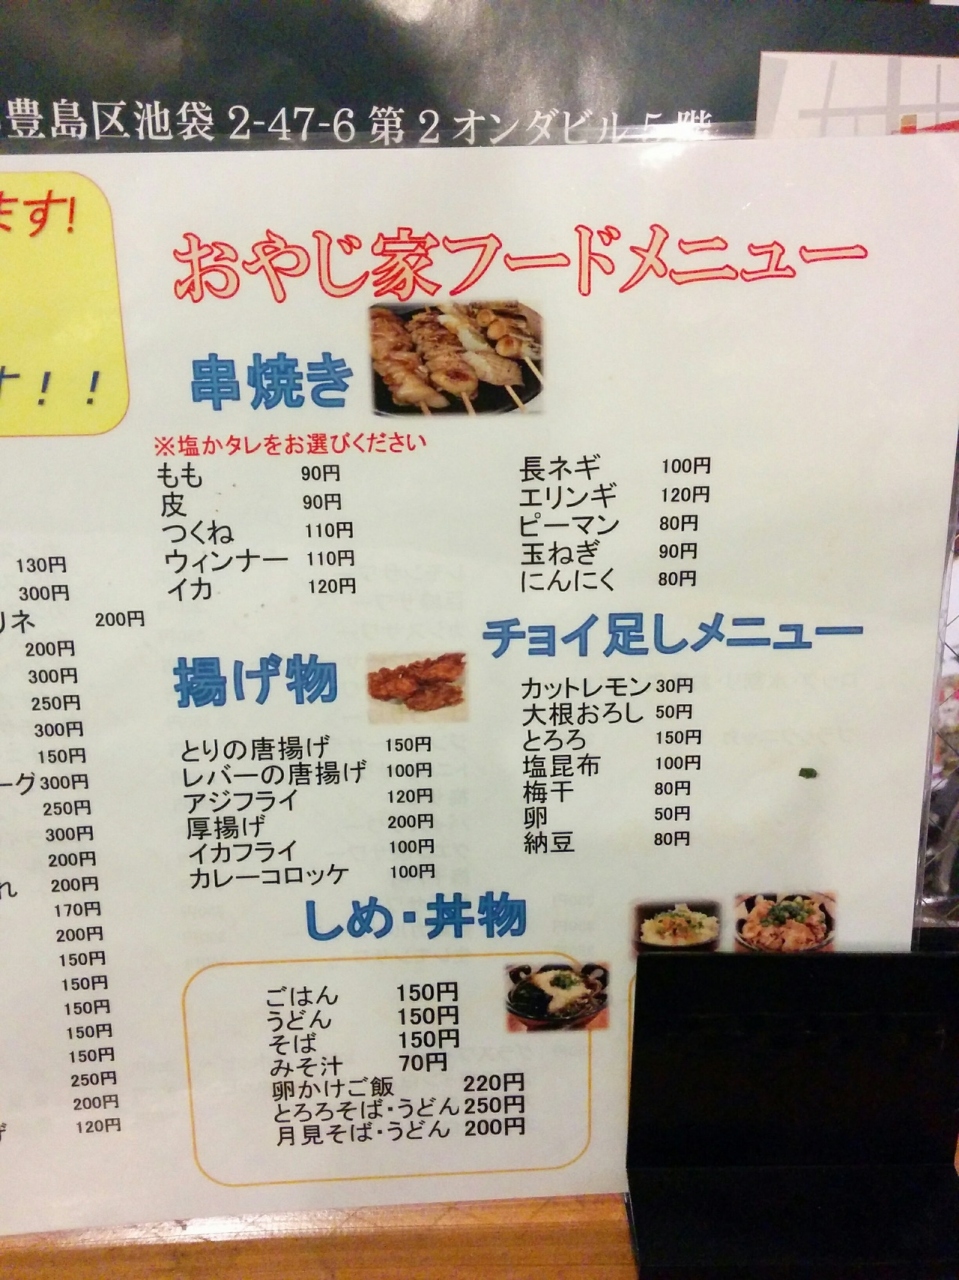 豊島区池袋2-47-6第2オンダビル5階
ます!
す！！
おやじ家フードメニュー
串焼き
※塩かタレをお選びください
もも 90円
皮 90円
つくね 110円
ウィンナー 110円
イカ 120円
長ネギ 100円
エリンギ 120円
ピーマン 80円
玉ねぎ 90円
にんにく 80円
チョイ足しメニュー
カットレモン 30円
大根おろし 50円
とろろ 150円
塩昆布 100円
梅干 80円
卵 50円
納豆 80円
揚げ物
とりの唐揚げ 150円
レバーの唐揚げ 100円
アジフライ 120円
厚揚げ 200円
イカフライ 100円
カレーコロッケ 100円
しめ・丼物
ごはん 150円
うどん 150円
そば 150円
みそ汁 70円
卵かけご飯 220円
とろろそば・うどん 250円
月見そば・うどん 200円
130円
300円
リネ 200円
200円
300円
250円
300円
150円
ーグ 300円
250円
300円
200円
れ 200円
170円
200円
150円
150円
150円
150円
150円
250円
200円
げ 120円